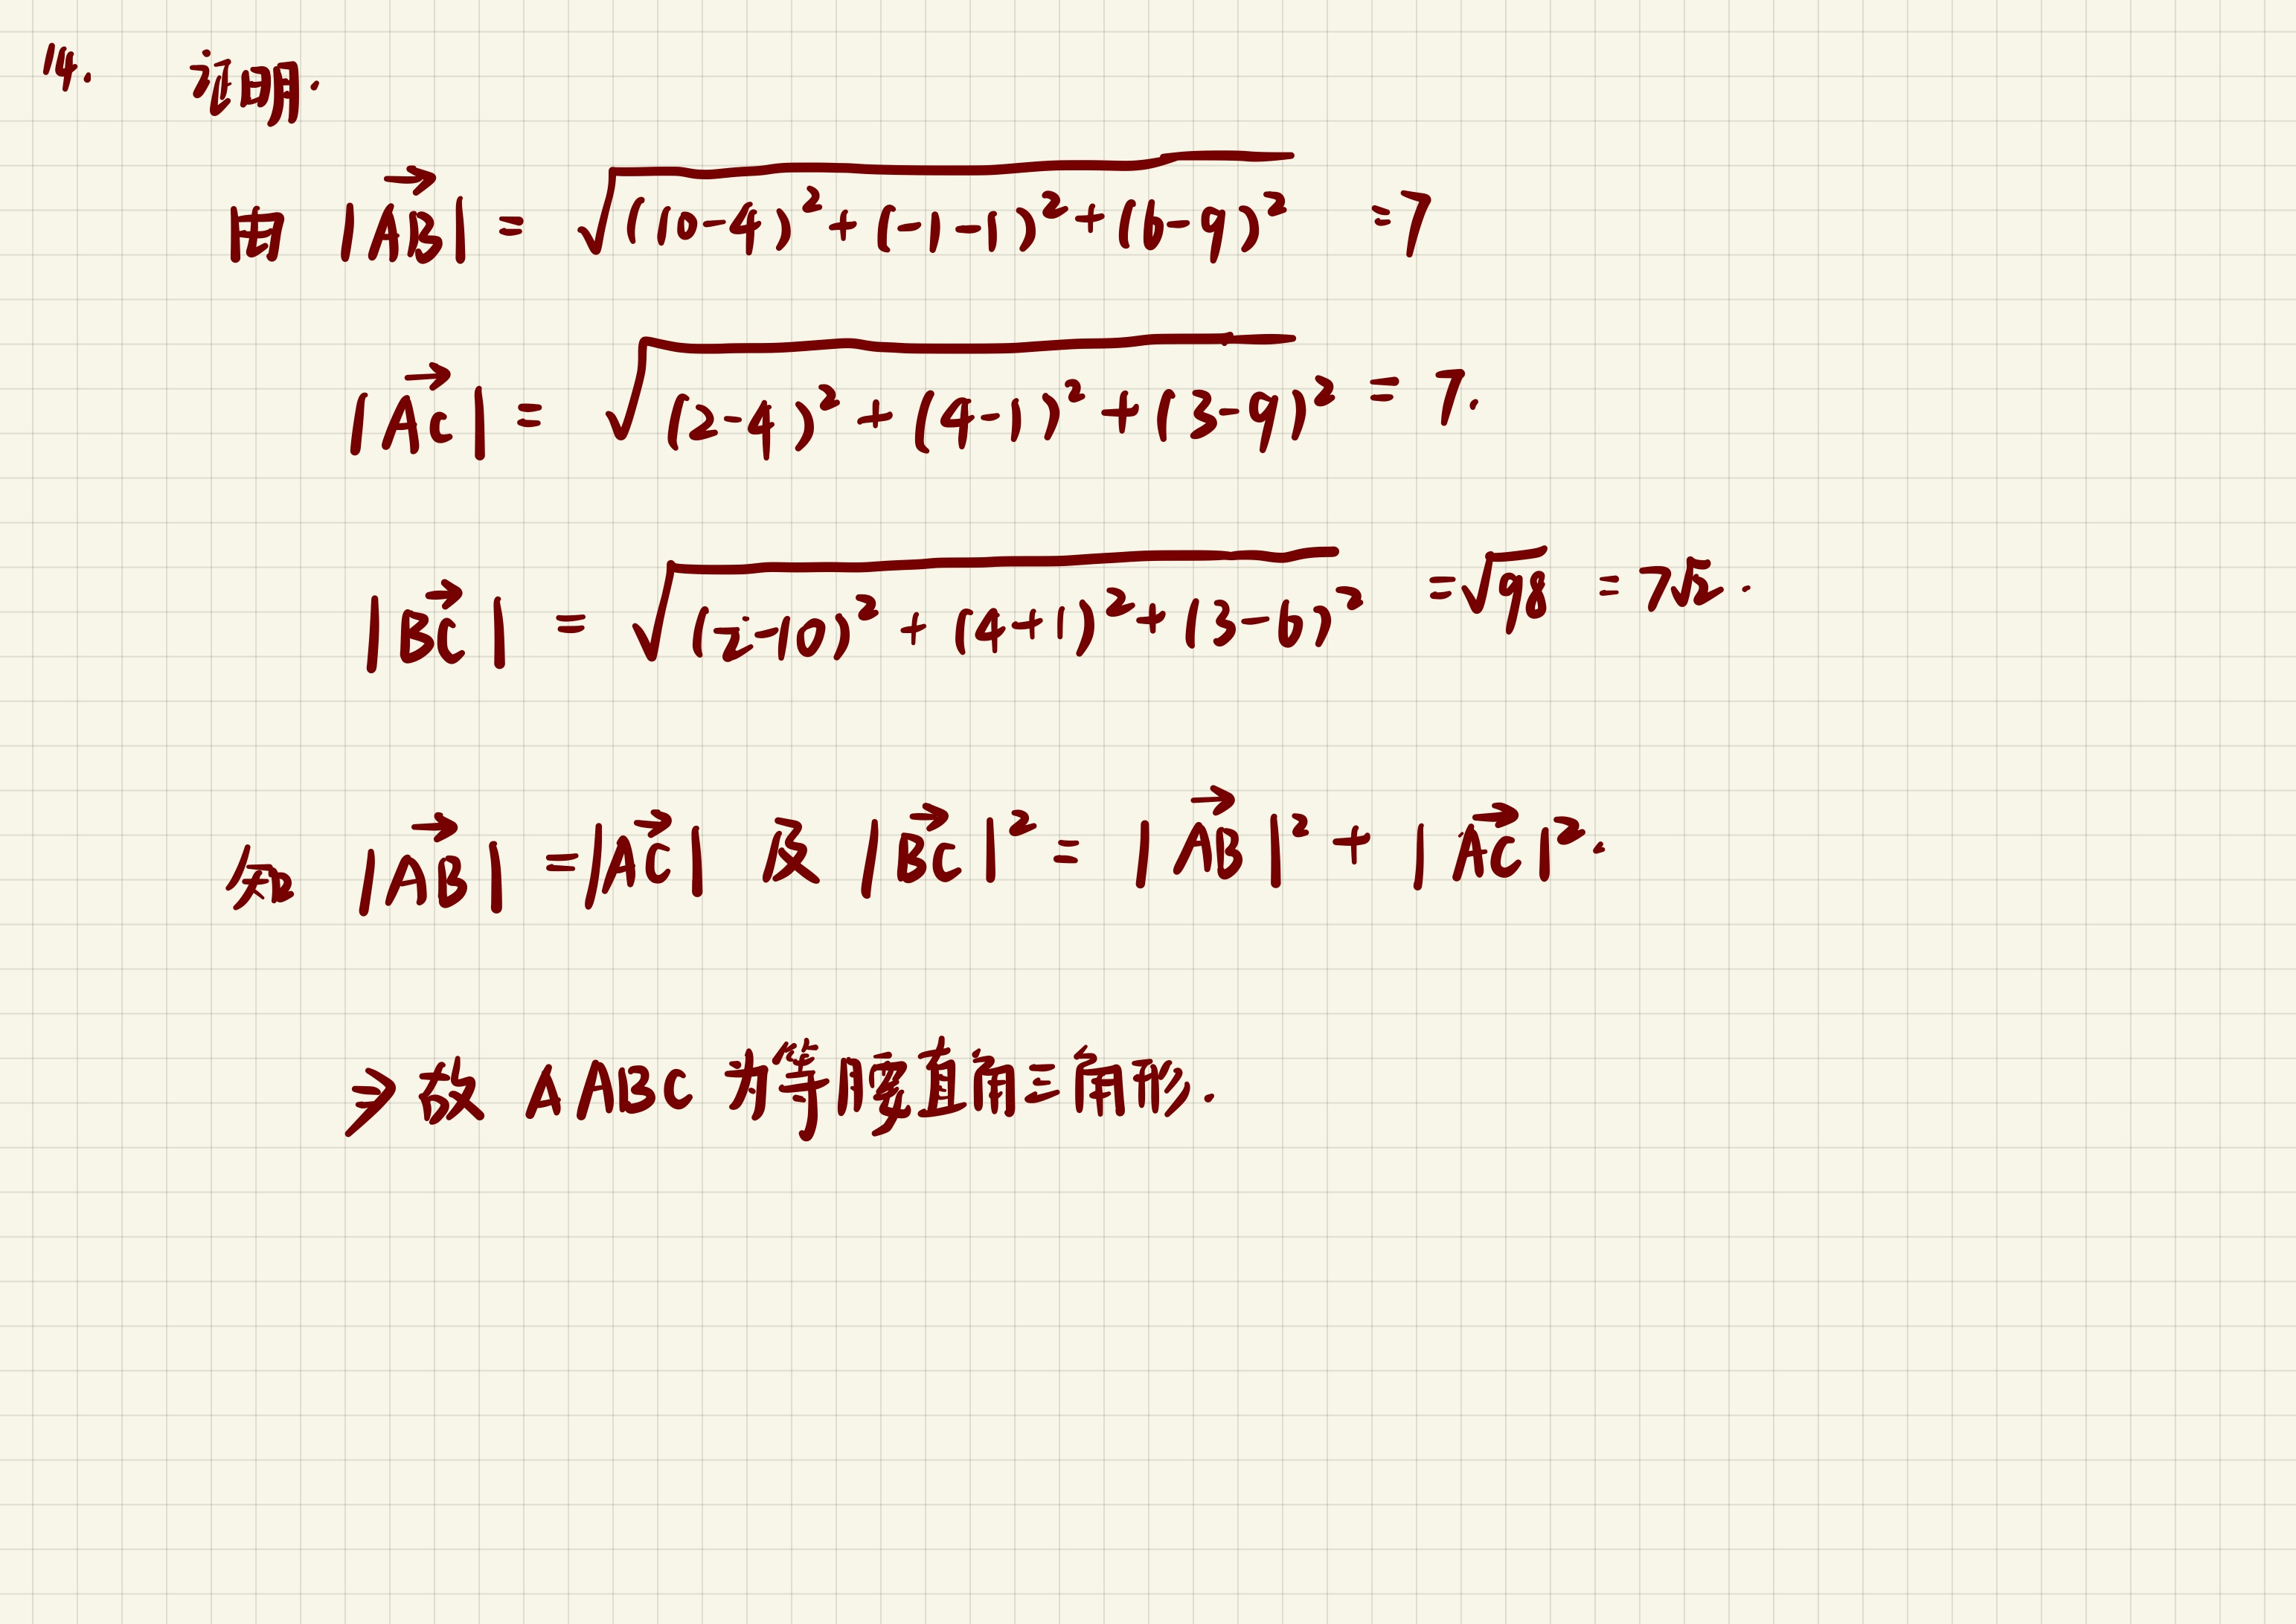 14. 证明.
由 |AB→| = √((10-4)²+(-1-1)²+(6-9)²) =7
|AC→| = √((2-4)²+(4-1)²+(3-9)²) = 7.
|BC→| = √((2-10)²+(4+1)²+(3-6)²) =√98 =7√2.
知 |AB→| =|AC→| 及 |BC→|² = |AB→|²+ |AC→|².
⇒故 △ABC 为等腰直角三角形.